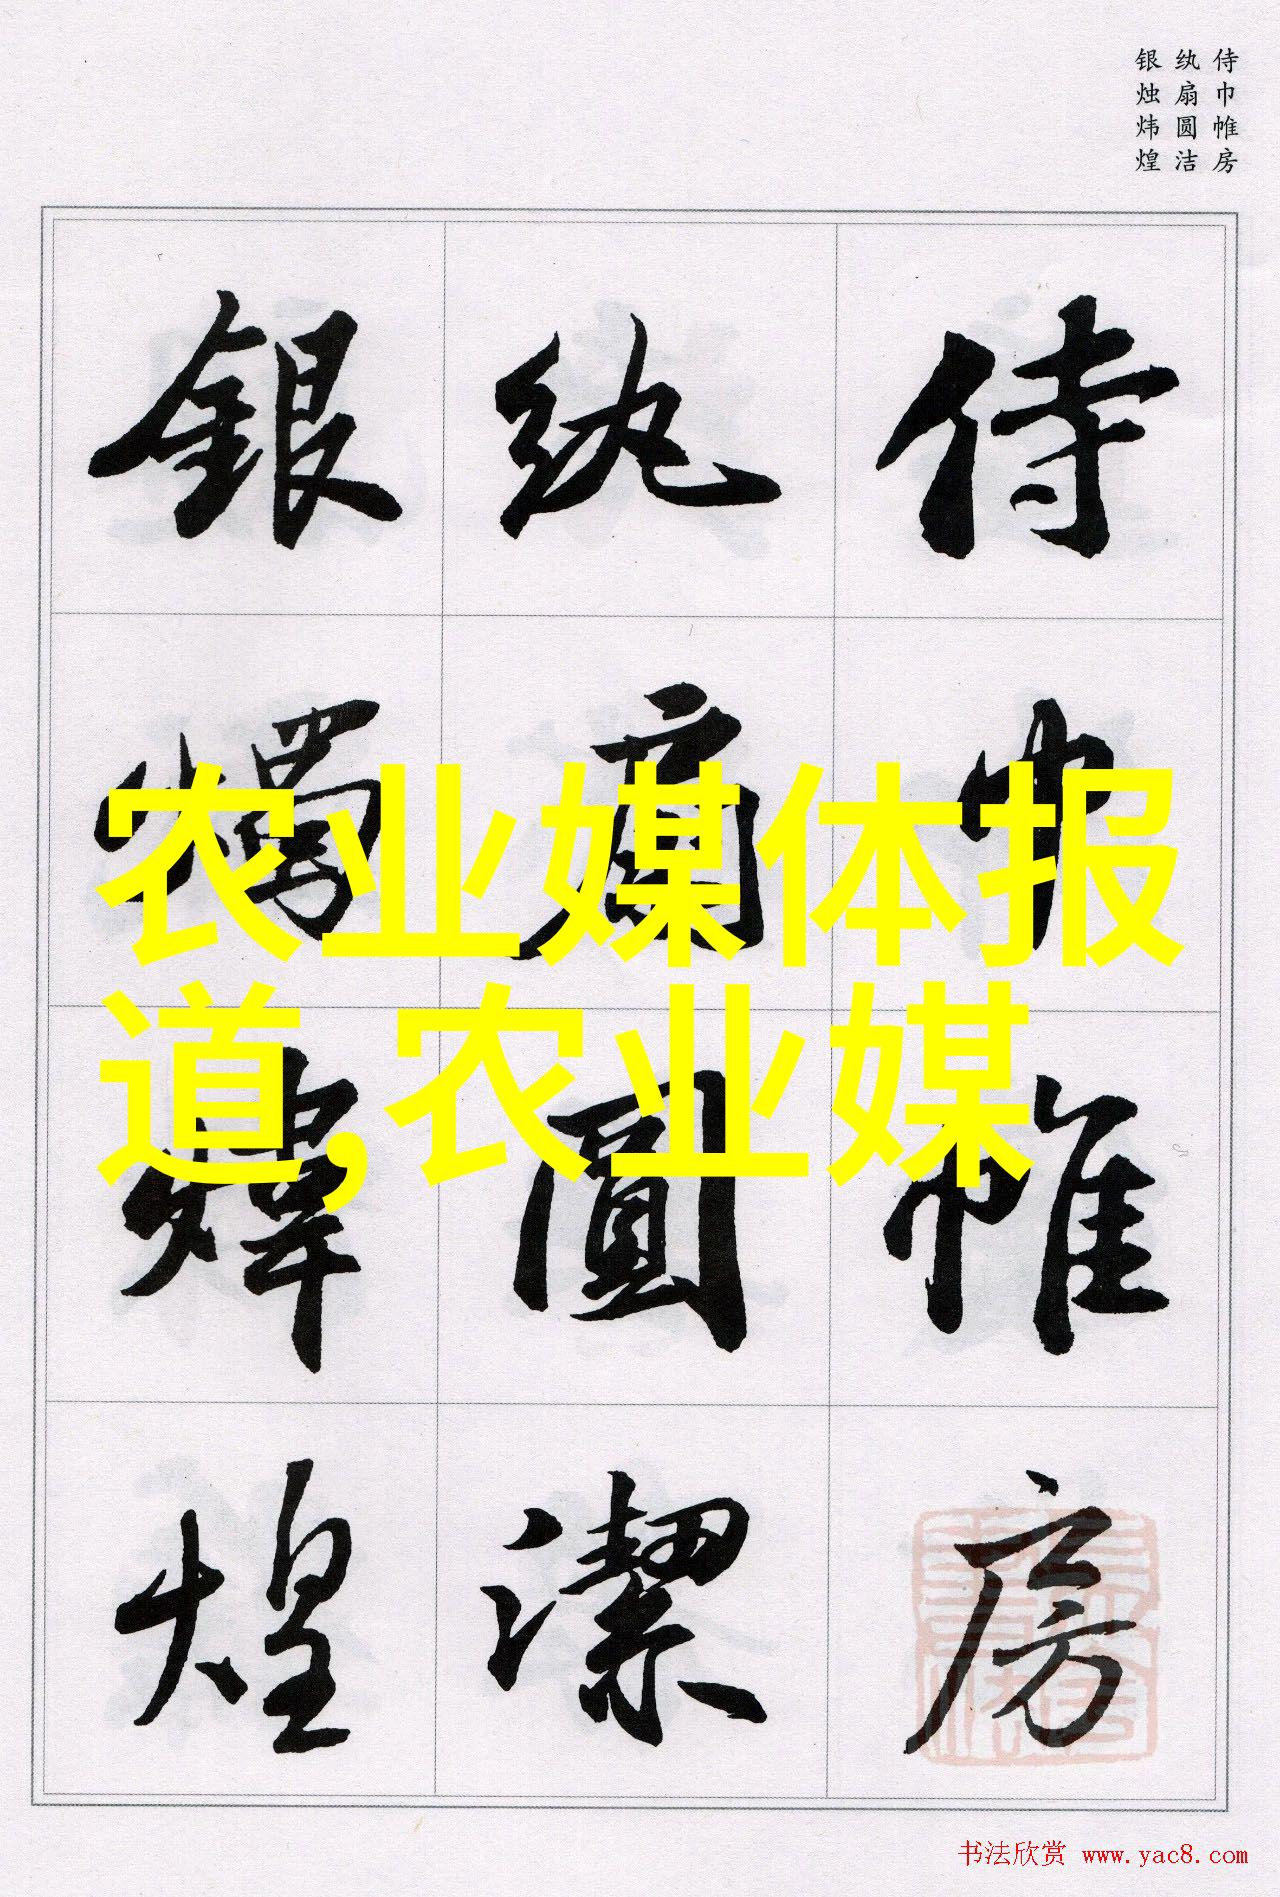 侍巾帷房
纨扇圆洁
银烛炜煌
侍巾帷房
紈扇圓潔
銀燭煒煌
农业媒体报
道,农业媒
书法欣赏 www.yac8.com